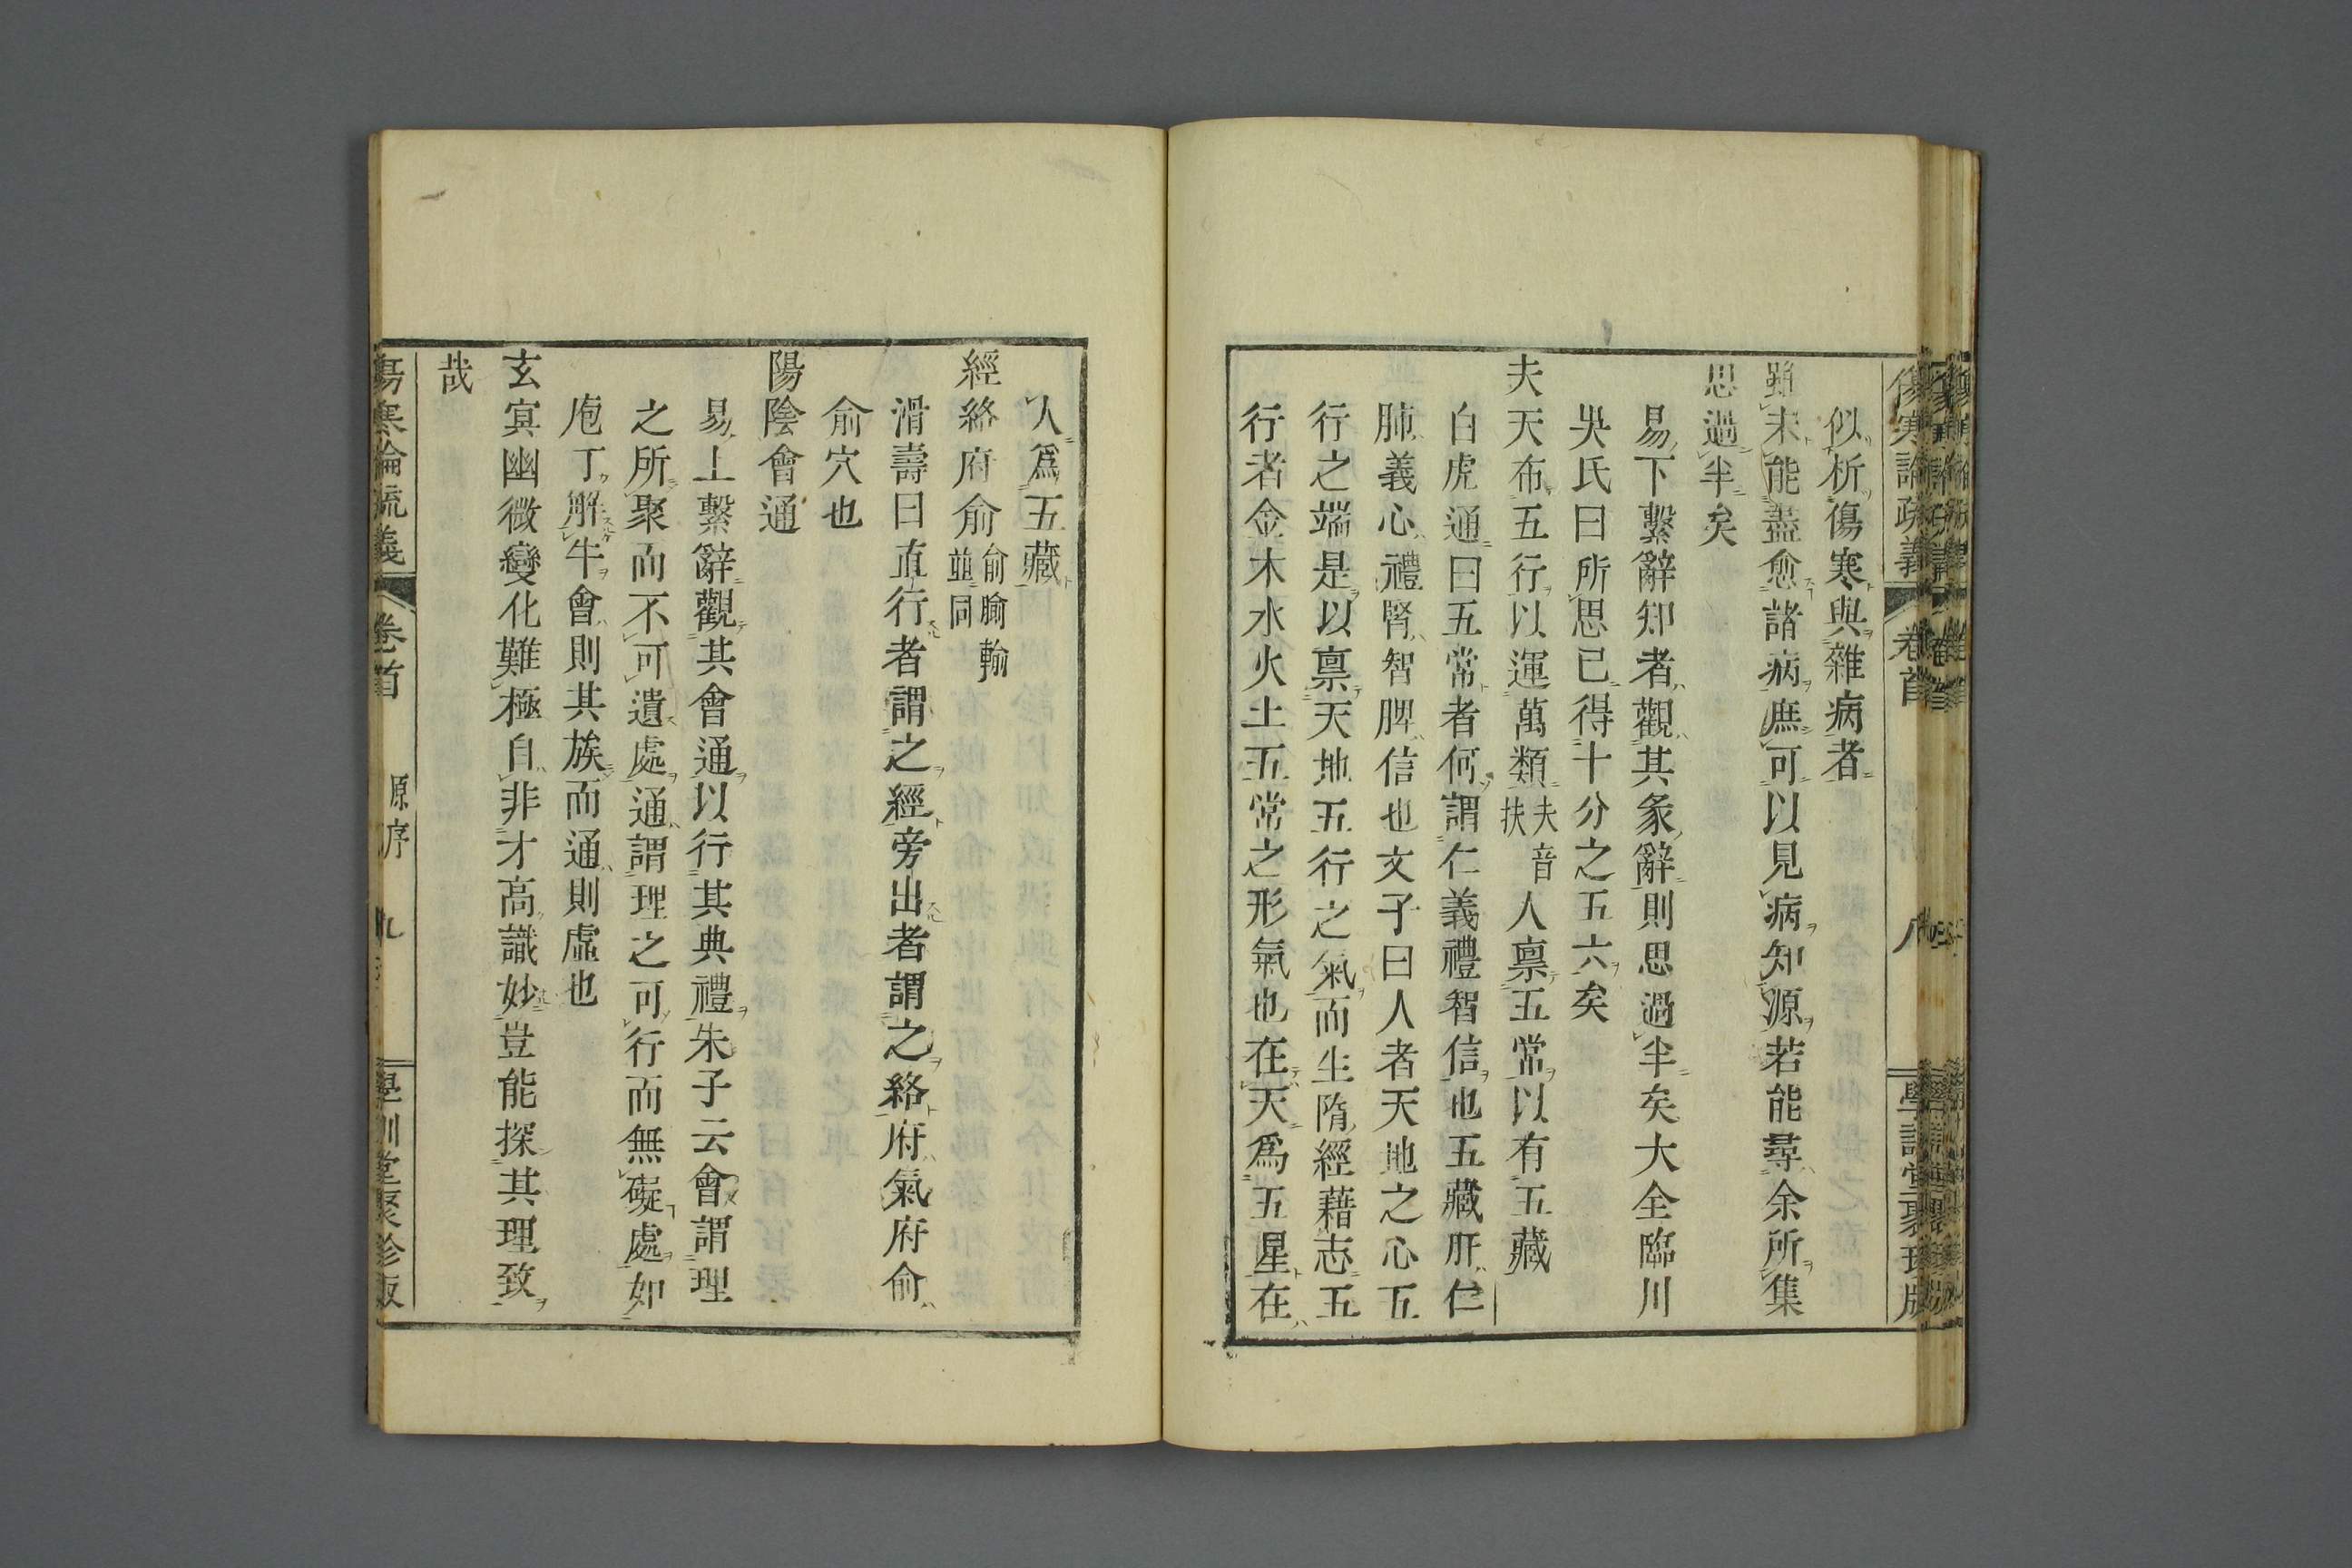 傷寒論疏義 卷首 八 學訓堂聚珍版
似析傷寒與雜病者
雖未能盡愈諸病庶可以見病知源若能尋余所集
思過半矣
易下繫辭知者觀其彖辭則思過半矣大全臨川
吳氏曰所思已得十分之五六矣
夫天布五行以運萬類夫音扶人禀五常以有五藏
白虎通曰五常者何謂仁義禮智信也五藏肝仁
肺義心禮腎智脾信也文子曰人者天地之心五
行之端是以禀天地五行之氣而生隋經藉志五
行者金木水火土五常之形氣也在天爲五星在
人爲五藏
經絡府俞俞腧輸並同
滑壽曰直行者謂之經旁出者謂之絡府氣府俞
俞穴也
陽陰會通
易上繫辭觀其會通以行其典禮朱子云會謂理
之所聚而不可遺處通謂理之可行而無礙處如
庖丁解牛會則其族而通則虛也
玄冥幽微變化難極自非才高識妙豈能探其理致
哉
傷寒論疏義 卷首 原序 九 學訓堂聚珍版